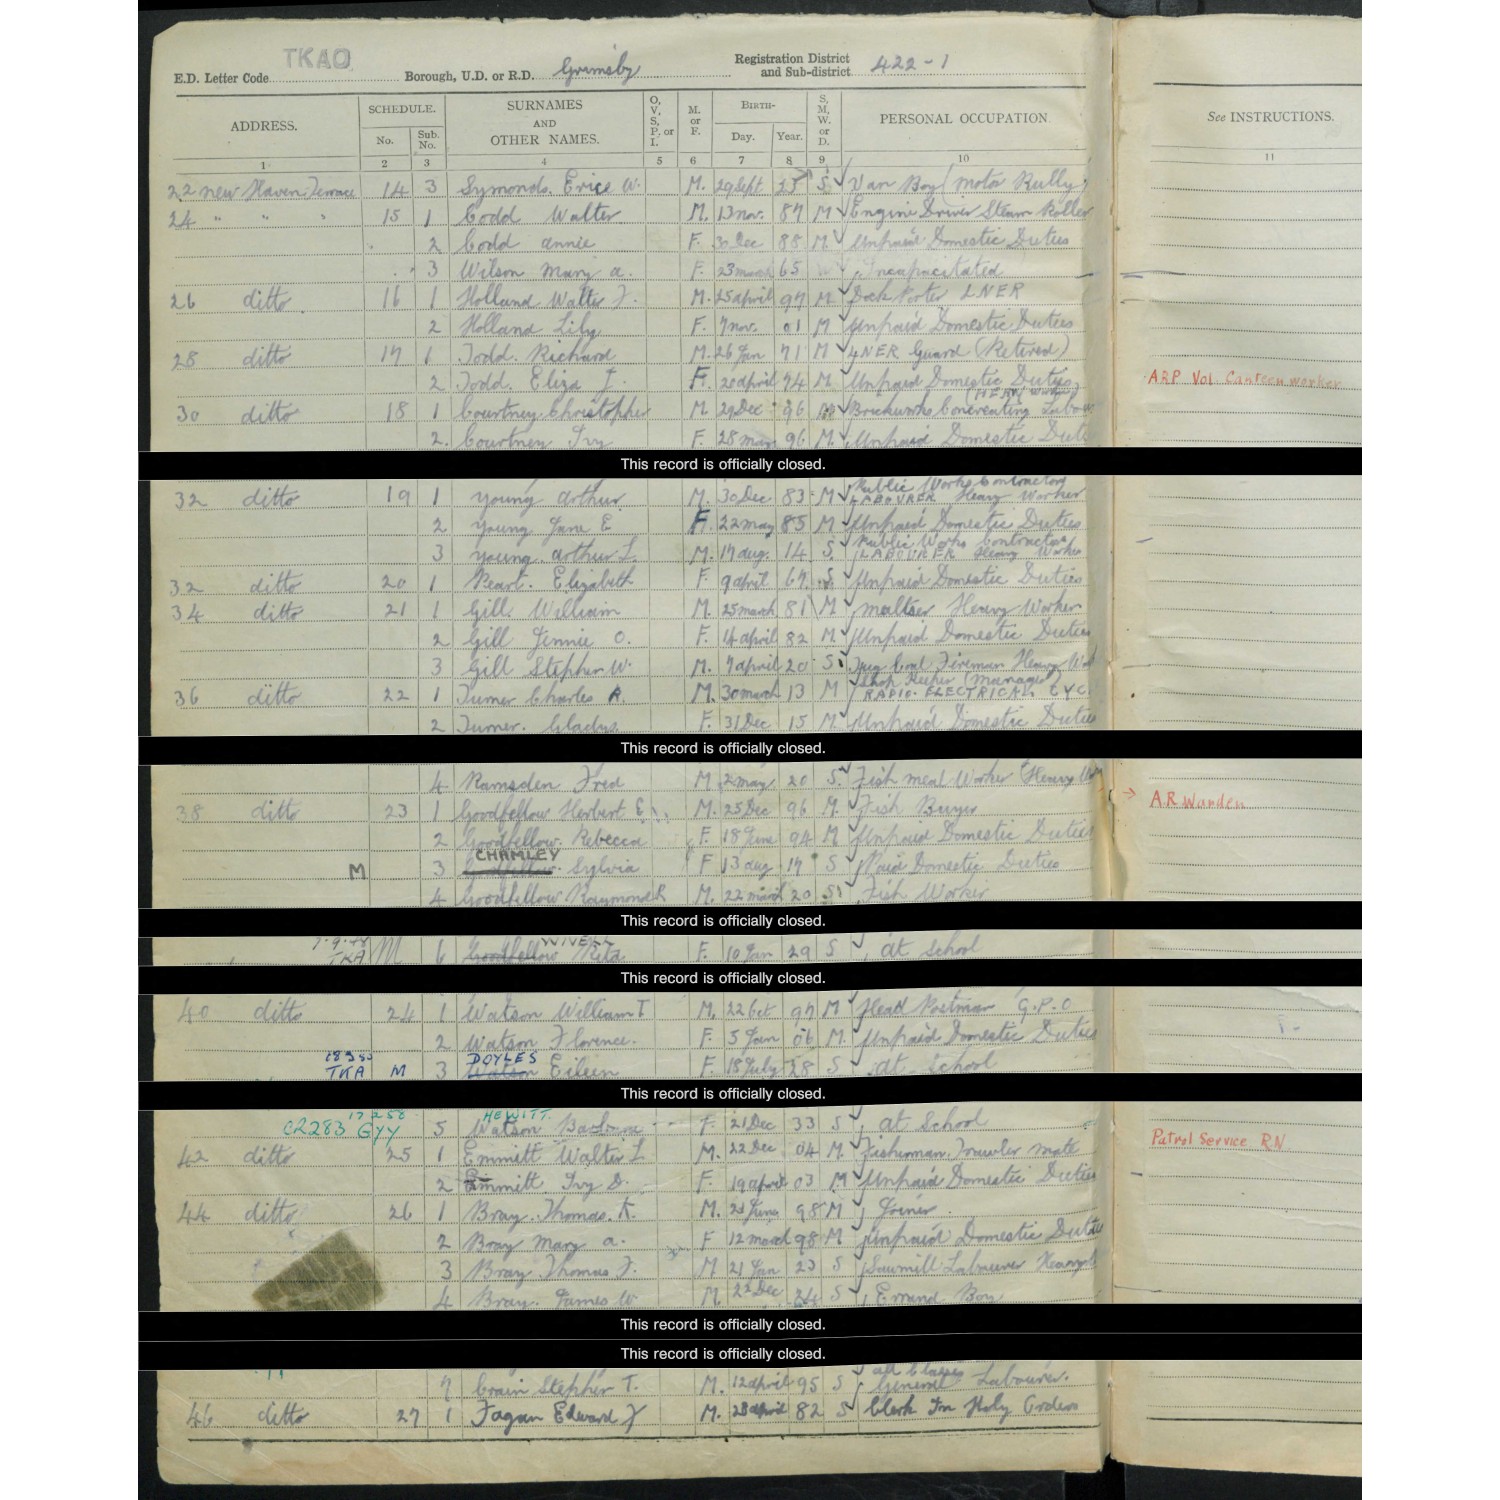 TKAO
E.D. Letter Code Borough, U.D. or R.D. Grimsby Registration District and Sub-district 422-1
ADDRESS. SCHEDULE. No. Sub. No. SURNAMES AND OTHER NAMES. O, V, S, P, or I. M. or F. BIRTH- Day. Year. S, M, W, or D. PERSONAL OCCUPATION See INSTRUCTIONS.
1 2 3 4 5 6 7 8 9 10 11
22 new Haven Terrace 14 3 Symonds. Erice W. M. 29 Sept 25 S. Van Boy (Motor Rully)
24 " " " 15 1 Codd Walter M. 13 nov. 87 M Engine Driver Steam Roller
2 Codd annie F. 30 Dec 88 M Unpaid Domestic Duties
3 Wilson Mary a. F. 23 march 65 W Incapacitated
26 ditto 16 1 Holland Walter J. M. 25 april 97 M Dock Porter LNER
2 Holland Lily F. 7 nov. 01 M Unpaid Domestic Duties
28 ditto 17 1 Todd. Richard M. 26 Jan 71 M LNER Guard (Retired)
2 Todd. Eliza J. F. 20 april 74 M. Unpaid Domestic Duties ARP Vol Canteen worker
30 ditto 18 1 Courtney Christopher M. 29 Dec 96 M Brickworks Concreating Labour (HEAVY WORKER)
2. Courtney Ivy F. 28 may 96 M. Unpaid Domestic Duti
This record is officially closed.
32 ditto 19 1 Young Arthur M. 30 Dec 83 M Public Works Contractors LABOURER Heavy Worker
2 Young Jane E F. 22 may 85 M Unpaid Domestic Duties
3 Young. Arthur L. M. 17 aug. 14 S. Public Works Contractor LABOURER Heavy Worker
32 ditto 20 1 Peart. Elizabeth F. 9 april 67 S Unpaid Domestic Duties
34 ditto 21 1 Gill William M. 25 march 81 M maltser Heavy Worker
2 Gill Jennie O. F. 14 april 82 M. Unpaid Domestic Duties
3 Gill Stephen W. M. 7 april 20 S. Tug Boat Fireman Heavy Wor
36 ditto 22 1 Turner Charles R. M. 30 march 13 M Shop Keeper (Manager) RADIO. ELECTRICAL CYC.
2 Turner. Gladys F. 31 Dec 15 M. Unpaid Domestic Duties
This record is officially closed.
4 Ramsden Fred M. 2 may 20 S. Fish meal Worker Heavy W
38 ditto 23 1 Goodfellow Herbert E. M. 25 Dec 96 M. Fish Buyer → A.R Warden
2 Goodfellow. Rebecca F. 18 June 94 M Unpaid Domestic Duties
CHAMLEY
M 3 Goodfellow. Sylvia F 13 aug 17 S Paid Domestic Duties
4 Goodfellow Raymond R M. 22 march 20 S Fish Worker
This record is officially closed.
7.9.48 TKA M 6 Goodfellow WIVELL Rita F. 10 Jan 29 S at school
This record is officially closed.
40 ditto 24 1 Watson William T M. 22 Oct 97 M Head Postman G.P.O
2 Watson Florence. F. 5 Jan 06 M. Unpaid Domestic Duties
DOYLES
TKA M 3 Watson Eileen F. 18 July 28 S at school
This record is officially closed.
17 2 58 HEWITT.
C2283 GYY 5 Watson Barbara F. 21 Dec 33 S at School
42 ditto 25 1 Emmett Walter L M. 22 Dec 04 M. Fisherman. Trawler mate Patrol Service RN
2 Emmitt Ivy D. F. 19 april 03 M Unpaid Domestic Duties
44 ditto 26 1 Bray. Thomas. K. M. 21 June 98 M Joiner.
2 Bray Mary a. F 12 march 98 M Unpaid Domestic Duties
3 Bray Thomas J. M 21 Jan 23 S Sawmill Labourer Heavy
4 Bray. James W M. 22 Dec 24 S Errand Boy
This record is officially closed.
This record is officially closed.
7 Crain Stephen T. M. 12 april 95 S all Classes General Labourer.
46 ditto 27 1 Fagan Edward J M. 28 april 82 S Clerk In Holy Orders